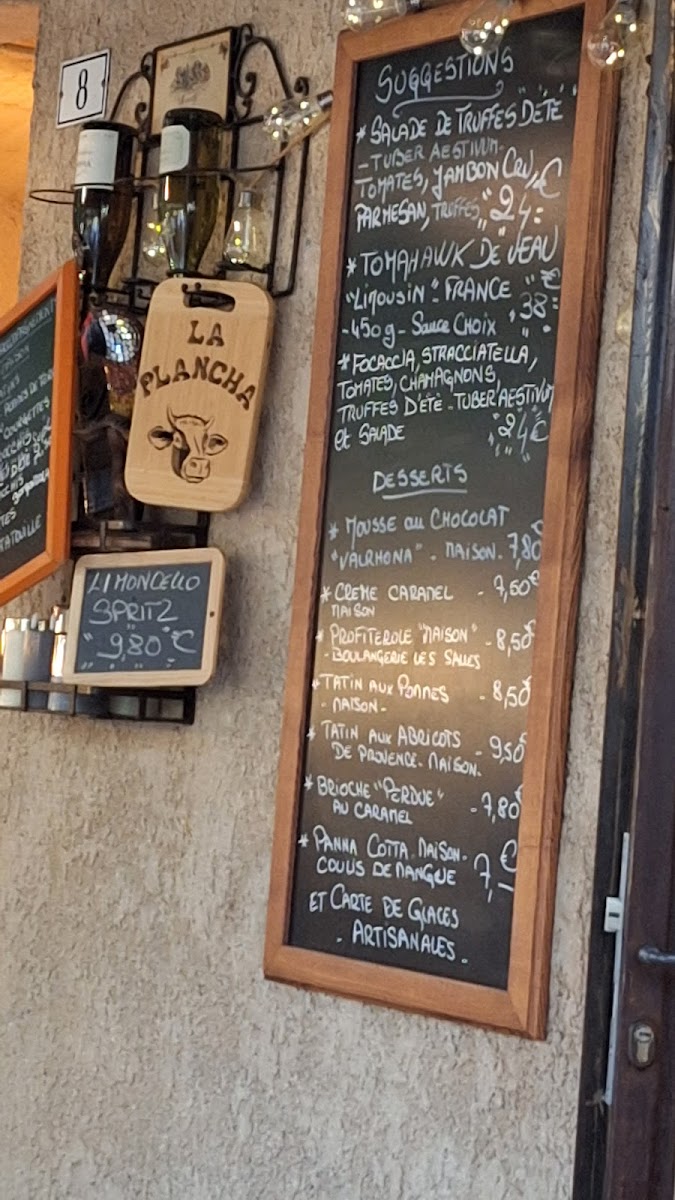 8
LA
PLANCHA
LIMONCELLO
SPRITZ
"9,80"€
COURGETTES
SUGGESTIONS
* SALADE DE TRUFFES D'ÉTÉ
- TUBER AESTIVUM -
TOMATES, JAMBON CRU,
PARMESAN, TRUFFES "24€"
* TOMAHAWK DE VEAU
"LIMOUSIN" - FRANCE
- 450g - Sauce CHOIX "38€"
* FOCACCIA, STRACCIATELLA,
TOMATES, CHAMPAGNONS,
TRUFFES D'ÉTÉ - TUBER AESTIVUM
et SALADE "24€"
DESSERTS
* MOUSSE au CHOCOLAT
"VALRHONA" - MAISON - 7,80€
* CREME CARAMEL - 7,60€
MAISON
* PROFITEROLE "MAISON" - 8,50€
- BOULANGERIE LES SALLES
* TATIN AUX POMMES - 8,50€
- MAISON -
* TATIN AUX ABRICOTS - 9,50€
DE PROVENCE - MAISON.
* BRIOCHE "PERDUE" - 7,80€
AU CARAMEL
* PANNA COTTA - MAISON - 7,€
COULIS DE MANGUE
ET CARTE DE GLACES
- ARTISANALES -